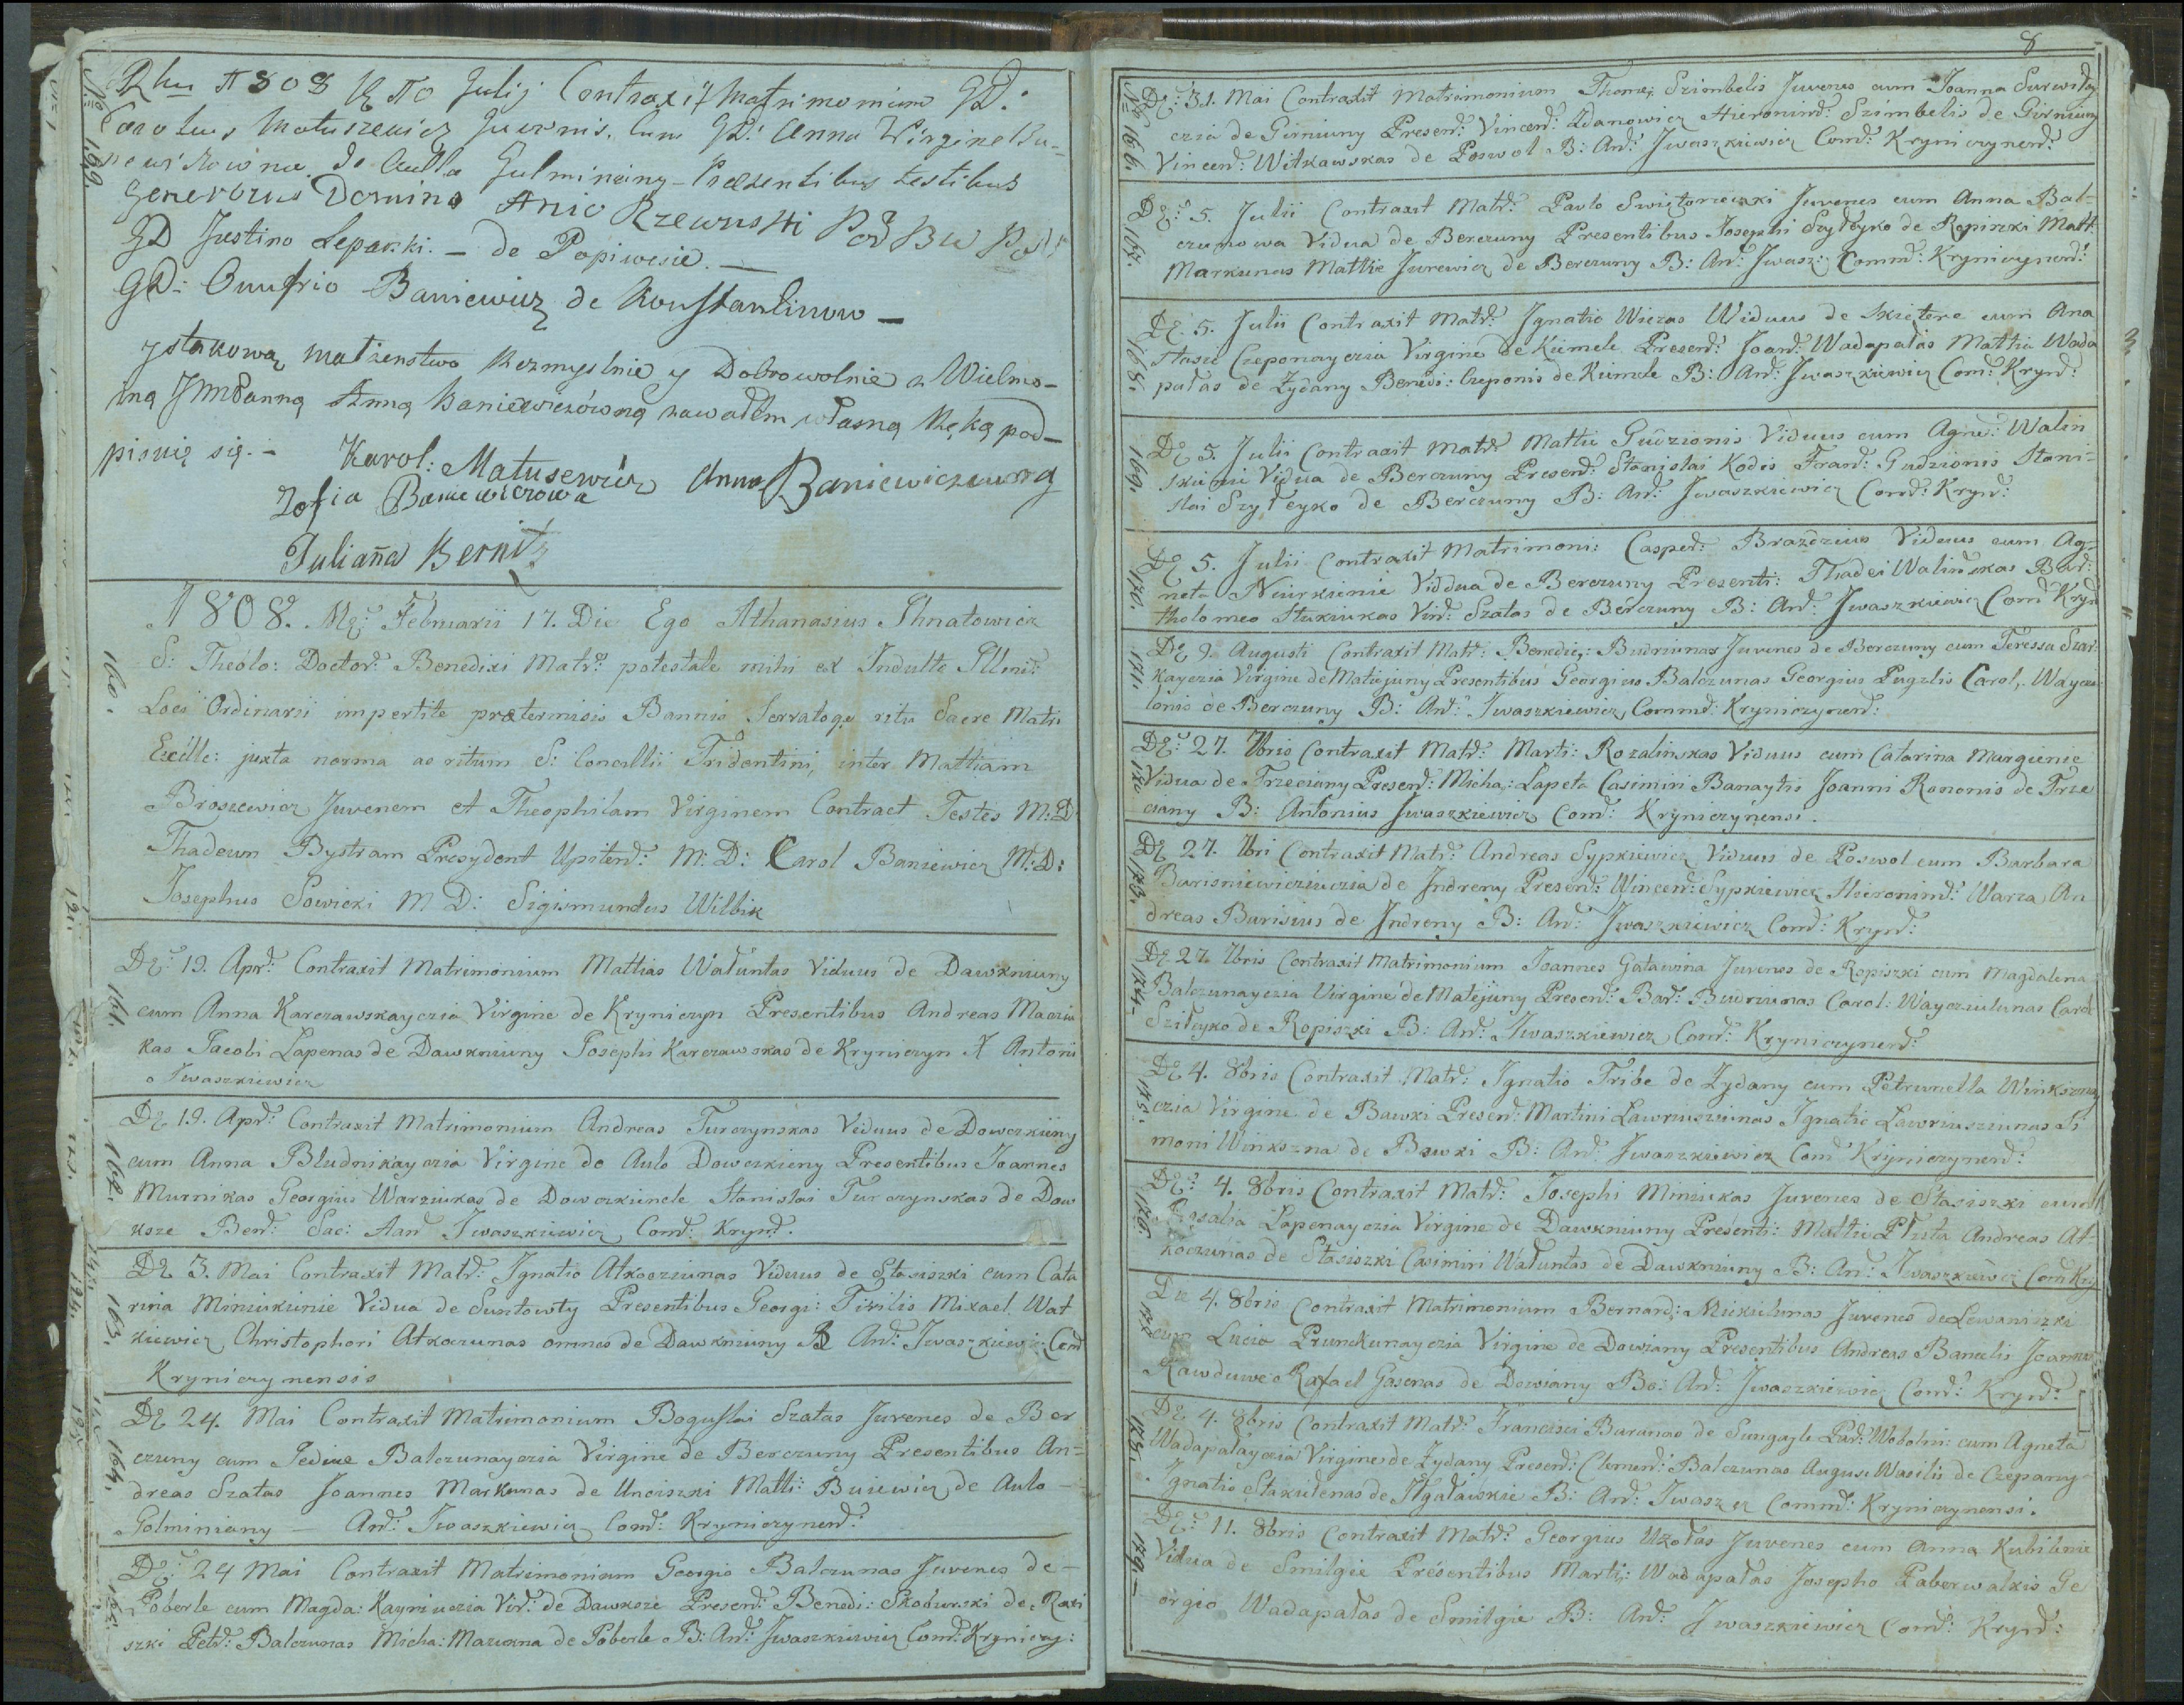 Rku 1808 10 Julij Contraxit Matrimonium GD:
Carolus Matuszewicz Juvenis. Cum GD: Anna Wirgine Ba-
newiczowna de Aulla Gulminciny - Præsentibus testibus
Generozus Domino Anio Rzewuski Pod
GD Justino Leparski. - de Popiwesie. -
GD: Onufrio Baniewicz de Konstantinow -
ystakową małżenstwo Rozmyslnie y Dobrowolnie z Wielmo-
żną JmPanną Anną Baniewiczówną zawarłem własną Ręką pod-
pisuię się. - Karol: Matusewicz Anna Baniewiczuwną
Zofia Baniewiczowa
Julianna Bernitz
160. 1808. Mę: Februarii 17. Die Ego Athanasius Ihnatowicz
S: Theolo: Doctor: Benedixi Matr: potestate mihi ex Indulto Illmi:
Loci Ordinarii impertite prætermisis Bannis Servatoqe ritu Sacre Matri
Ecclle: juxta norma ac ritum S: Concillii Tridentini, inter Mattiam
Broszewicz Juvenem et Theophilam Virginem Contract Testes M: D:
Thadeum Bystram Presydent Upitens: M: D: Carol Baniewicz M: D:
Josephus Sawicki M D: Sigismundus Wilbik
161. Dę: 19. Apr: Contraxit Matrimonium Mattias Wałuntas Viduus de Dawkniuny
cum Anna Karczawskayczia Virgine de Kryniczyn Presentibus Andreas Macziu
kas Jacobi Lapenas de Dawkniuny Josephi Karczawskas de Kryniczyn X Antoni
o Iwaszkiewicz
162. Dę 19. Apr: Contraxit Matrimonium Andreas Turczynskas Viduus de Dowczkiuny
cum Anna Bludnikayczia Virgine de Aulo Dowczkieny Presentibus Joannes
Murnikas Georgius Warziukas de Dowczkiunele Stanislai Turczynskas de Dow
ksze Ben: Sac: An Iwaszkiewicz Com: Kryn:
163. Dę 3. Mai Contraxit Matr: Ignatio Atkocziunas Viduus de Stasiszki cum Cata
rina Miniukiunie Vidua de Suntowty Presentibus Georgi: Tizilis Mixael Wat
kiewicz Christophori Atkoczunas omnes de Dawkniuny B An: Iwaszkiewicz Com
Kryniczynensis
164. Dę 24. Mai Contraxit Matrimonium Boguslai Szatas Juvenes de Ber
czuny cum Balczunayczia Virgine de Berczuny Presentibus An=
dreas Szatas Joannes Markunas de Unciszki Matti: Buiewicz de Aulo -
Golminiany - An: Iwaszkiewicz Com: Kryniczynen:
165. Dę: 24 Mai Contraxit Matrimonium Georgio Balczunas Juvenes de -
Poberle cum Magda: Kayniuczia Vir: de Dawksze Presen: Benedi: Skodurski de Rozi
szki Petr: Balczunas Micha: Mazukna de Poberle B: An: Iwaszkiewicz Com: Kryniczy:
8
No 166. Dę: 31. Mai Contraxit Matrimonium Thome Szimbelis Juvenes cum Joanna Surwiłay
czia de Girniuny Presen: Vincen: Zdanowicz Hieronim: Szimbelis de Girniuny
Vincen: Witkawskas de Poswol B: An: Iwaszkiewicz Com: Kryniczynen:
167. Dę: 5. Julii Contraxit Matr: Pavlo Swiętorzecki Juvenes cum Anna Bal-
czunowa Vidua de Berczuny Presentibus Josephi Szyłeyko de Ropiszki Matt:
Markunas Mattie Jurewicz de Berczuny B: An: Iwasz: Comm: Kryniczynen:
168. Dę. 5. Julii Contraxit Matr: Ignatio Wiczas Widuus de Skietere cum Ana
stasie Czeponayczia Virgine de Kiemele Presen: Joan: Wadapałas Mattia Wada
pałas de Zydany Benedi: Czeponis de Kiemele B: An: Iwaszkiewicz Com: Kryn:
169. Dę 5. Julii Contraxit Matr: Mattie Gudzionis Viduus cum Agne: Walin
skieni Vidua de Berczuny Presen: Stanislai Kodis Fran: Gudzionis Stani-
slai Szyłeyko de Berczuny B: An: Iwaszkiewicz Com: Kryn:
170. Dę 5. Julii Contraxit Matrimoni: Casper: Brazdzius Viduus cum Ag-
neta Niurkienie Viddua de Berczuny Presenti: Thadei Walinskas Bar:
tholomeo Stukiukas Vin: Szatas de Berczuny B: An: Iwaszkiewicz Com Kryn
171. Dę 9. Augusti Contraxit Matr: Benedic: Budriunas Juvenes de Berczuny cum Teressa Szar-
kayczia Virgine de Matiejuny Presentibus Georgius Balczunas Georgius Pugzlis Carol, Wayczu
lonis de Berczuny B: An: Iwaszkiewicz Comm: Kryniczynen:
172. Dę: 27. 7bris Contraxit Matr: Marti: Rozalinskas Viduus cum Catarina Murgienie
Vidua de Trzeciany Presen: Micha: Lapeta Casimiri Banaytis Joanni Rononis de Trze
ciany B: Antonius Iwaszkiewicz Com: Kryniczynensi.
173. Dę 27. 7bri Contraxit Matr: Andreas Sypkiewicz Viduus de Poswol cum Barbara
Burisniewicziuczia de Indreny Presen: Wincen: Sypkiewicz Hieronim: Warza An
dreas Burisius de Indreny B: An: Iwaszkiewicz Com: Kryn:
174. Dę 27. 7bris Contraxit Matrimonium Joannes Gatawina Juvenes de Ropiszki cum Magdalena
Balczunayczia Virgine de Matejuny Presen: Bar: Budrzunas Carol: Waycziulunas Carol
Sziłeyko de Ropiszki B: An: Iwaszkiewicz Com: Kryniczynen:
175. Dę 4. 8bris Contraxit Matr: Ignatio Tribe de Zydany cum Petrunella Winksznay
czia Virgine de Bawki Presen: Martini Lawriuszunas Ignatio Lawriuszunas Si
moni Winkszna de Bawki B: An: Iwaszkiewicz Com Kryniczynen:
176. Dę: 4. 8bris Contraxit Matr: Josephi Miniukas Juvenes de Stasiszki cum
Rosalia Lapenayczia Virgine de Dawkniuny Presenti: Mattie Pluta Andreas At-
koczunas de Stasiszki Casimiri Wałuntas de Dawkniuny B: An: Iwaszkiewicz Com Kry
177. Die 4. 8bris Contraxit Matrimonium Bernard: Mikulunas Juvenes de Lewaniszki
cum Lucia Prunckunayczia Virgine de Dowiany Presentibus Andreas Banelis Joannes
Rawduwe Rafael Gasenas de Dowiany Be: An: Iwaszkiewicz Com: Kryn:
178. Dę 4. 8bris Contraxit Matr: Francisci Buranas de Surgayle Par: Wobolni: cum Agneta
Wadapałayczia Virgine de Zydany Presen: Clemen: Balczunas Augus: Wasilis de Czepany
Ignatio Stakielenas de B: An: Iwaszkz Comm: Kryniczynensi.
179. Dę: 11. 8bris Contraxit Matr: Georgius Użołas Juvenes cum Anna Kubilenie
Vidua de Smilgie Presentibus Marti: Wadapałas Josepho Paberwalkis Ge
orgio Wadapałas de Smilgie B: An: Iwaszkiewicz Com: Kryn: